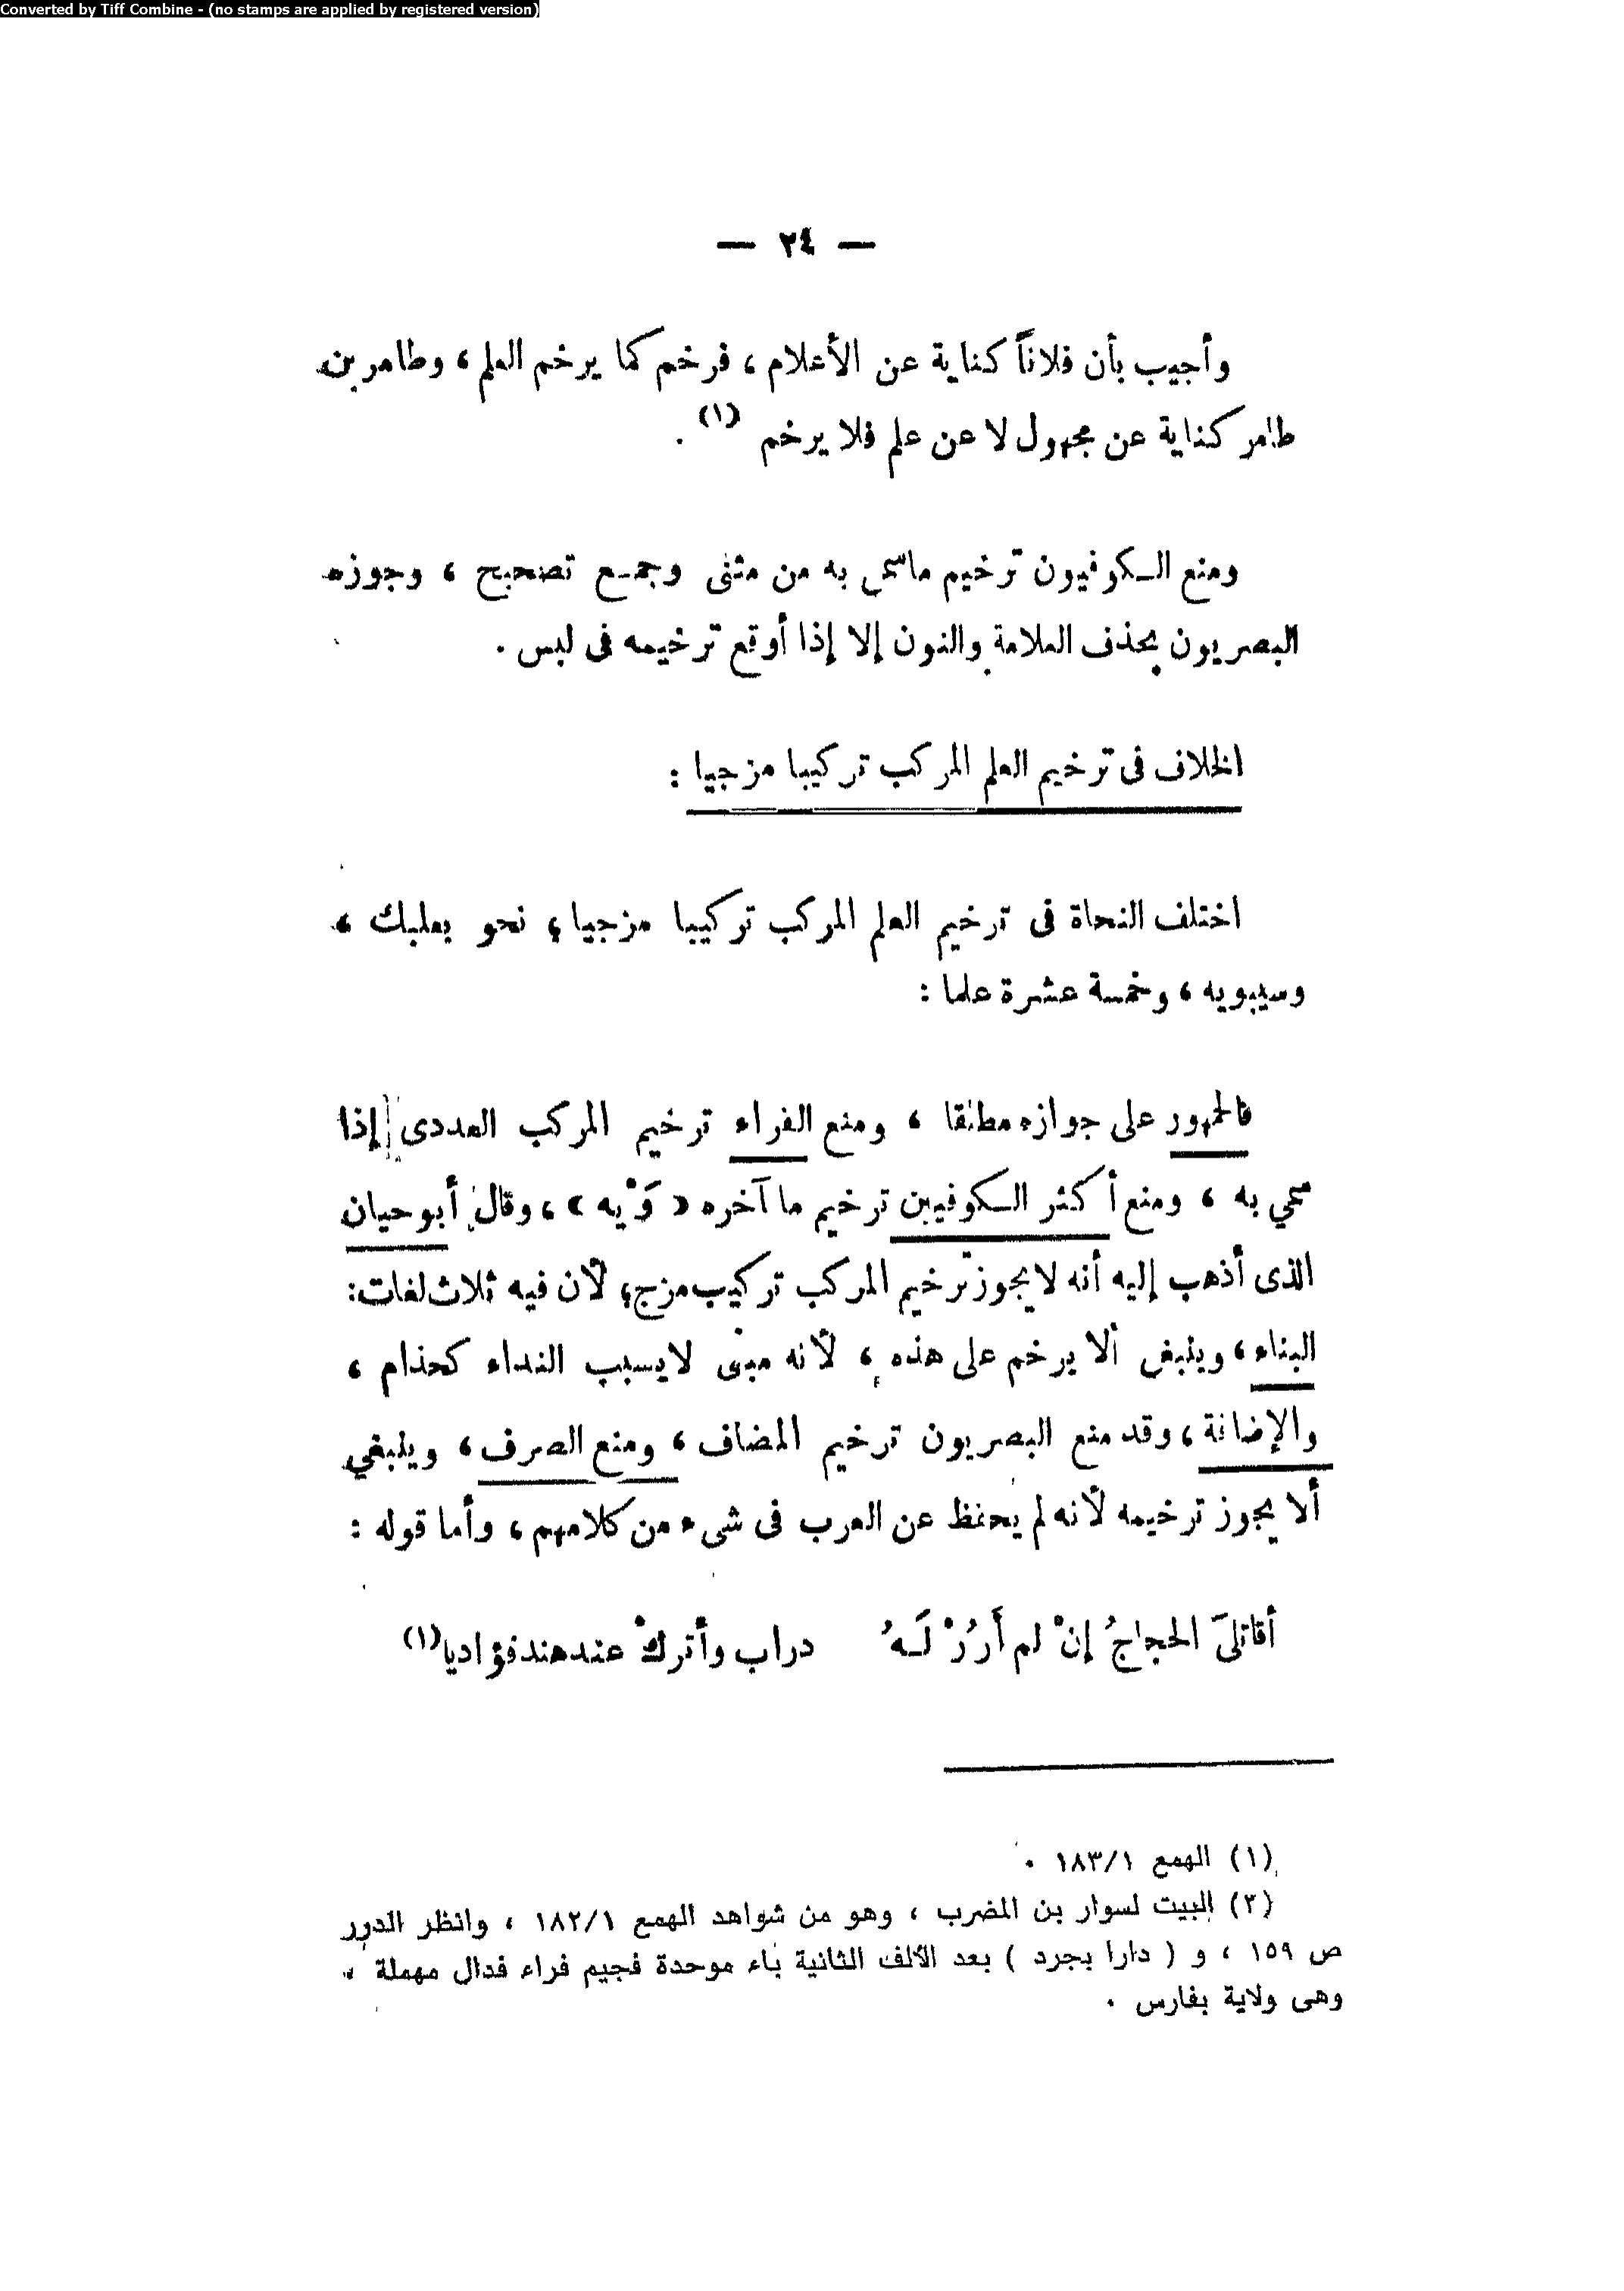 Converted by Tiff Combine - (no stamps are applied by registered version)
— ٢٤ —
وأجيب بأن فلاناً كناية عن الأعلام ، فرخم كما يرخم العلم ، وطامر بن
طامر كناية عن مجهول لا عن علم فلا يرخم (١) .
ومنع الكوفيون ترخيم ماسمى به من مثنى وجمع تصحيح ، وجوزه
البصريون بحذف العلامة والنون إلا إذا أوقع ترخيمه فى لبس .
الخلاف فى ترخيم العلم المركب تركيبا مزجيا :
اختلف النحاة فى ترخيم العلم المركب تركيبا مزجيا ، نحو بعلبك ،
وسيبويه ، وخمسة عشرة علما :
فالجمهور على جوازه مطلقا ، ومنع الفراء ترخيم المركب العددى إذا
سمي به ، ومنع أكثر الكوفيين ترخيم ما آخره « وَيْه » ، وقال أبو حيان
الذى أذهب إليه أنه لا يجوز ترخيم المركب تركيب مزج ، لأن فيه ثلاث لغات :
البناء ، وينبغى ألا يرخم على هذه ، لأنه مبنى لا بسبب النداء كحذام ،
والإضافة ، وقد منع البصريون ترخيم المضاف ، ومنع الصرف ، وينبغي
ألا يجوز ترخيمه لأنه لم يحفظ عن العرب فى شىء من كلامهم ، وأما قوله :
أقاتلىَ الحجاجُ إنْ لم أَزُرْ لَـهُ دراب وأتركْ عند هند فؤاديا (١)
(١) الهمع ١٨٣/١ .
(٢) البيت لسوار بن المضرب ، وهو من شواهد الهمع ١٨٢/١ ، وانظر الدرر
ص ١٥٩ ، و ( دارا بجرد ) بعد الألف الثانية باء موحدة فجيم فراء فدال مهملة ،
وهى ولاية بفارس .